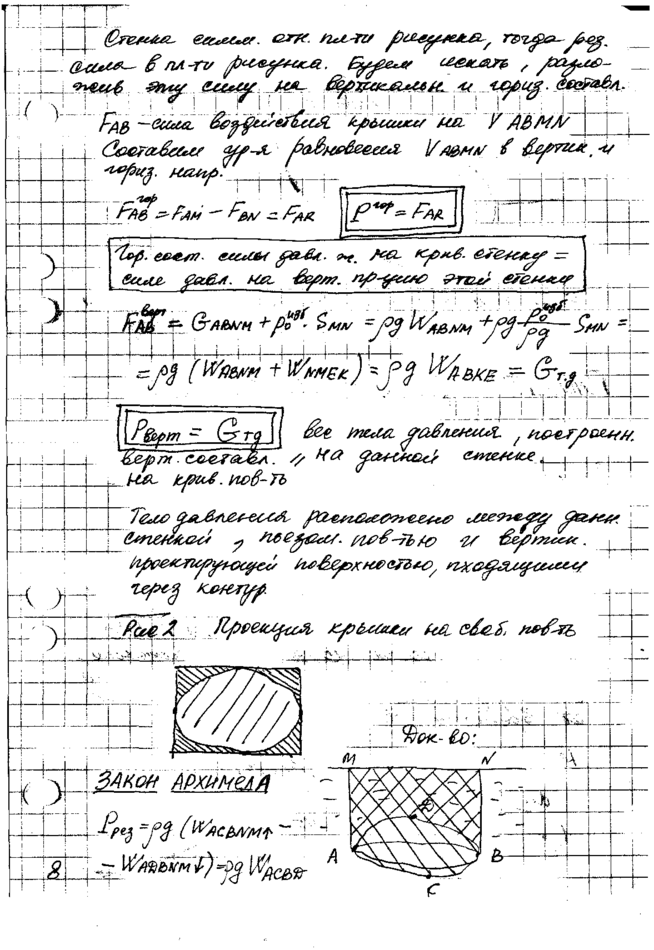 Стенка симм. отн. пл-ти рисунка, тогда рез.
сила в пл-ти рисунка. Будем искать, разло-
жив эту силу на вертикальн. и гориз. составл.
F_AB – сила воздействия крышки на V ABMN
Составим ур-я равновесия V ABMN в вертик. и
гориз. напр.
F_AB^гор = F_AM − F_BN = F_AR   P^гор = F_AR
Гор. сост. силы давл. ж. на крив. стенку =
силе давл. на верт. пр-цию этой стенки
F_AB^верт = G_ABNM + p_0^изб · S_MN = ρg W_ABNM + ρg p_0^изб/ρg S_MN =
= ρg (W_ABNM + W_NMEK) = ρg W_ABKE = G_т.д
P_верт = G_тд   вес тела давления, построенн.
верт. составл. „ на данной стенке
на крив. пов-ть
Тело давления расположено между данн.
стенкой, пьезом. пов-тью и вертик.
проектирующей поверхностью, пходящими
через контур.
Рис 2   Проекция крышки на своб. пов-ть
Док-во:
M N
ЗАКОН АРХИМЕДА
D
P_рез = ρg (W_ACBNM↑ −
A B
− W_ADBNM↓) = ρg W_ACBD
C
8